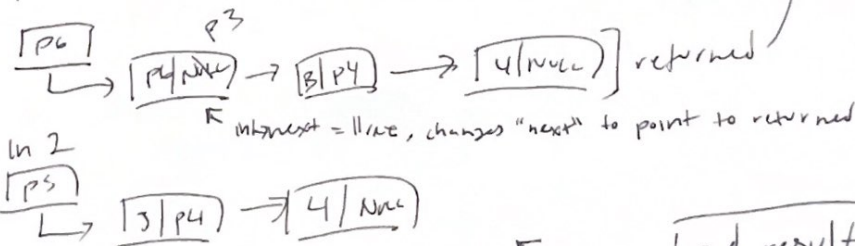 p3
[P6] → [P4|NULL] → [3|P4] → [4|NULL] ] returned
= line, changes "next" to point to returned
ln 2
[P5] → [3|P4] → [4|NULL]
result